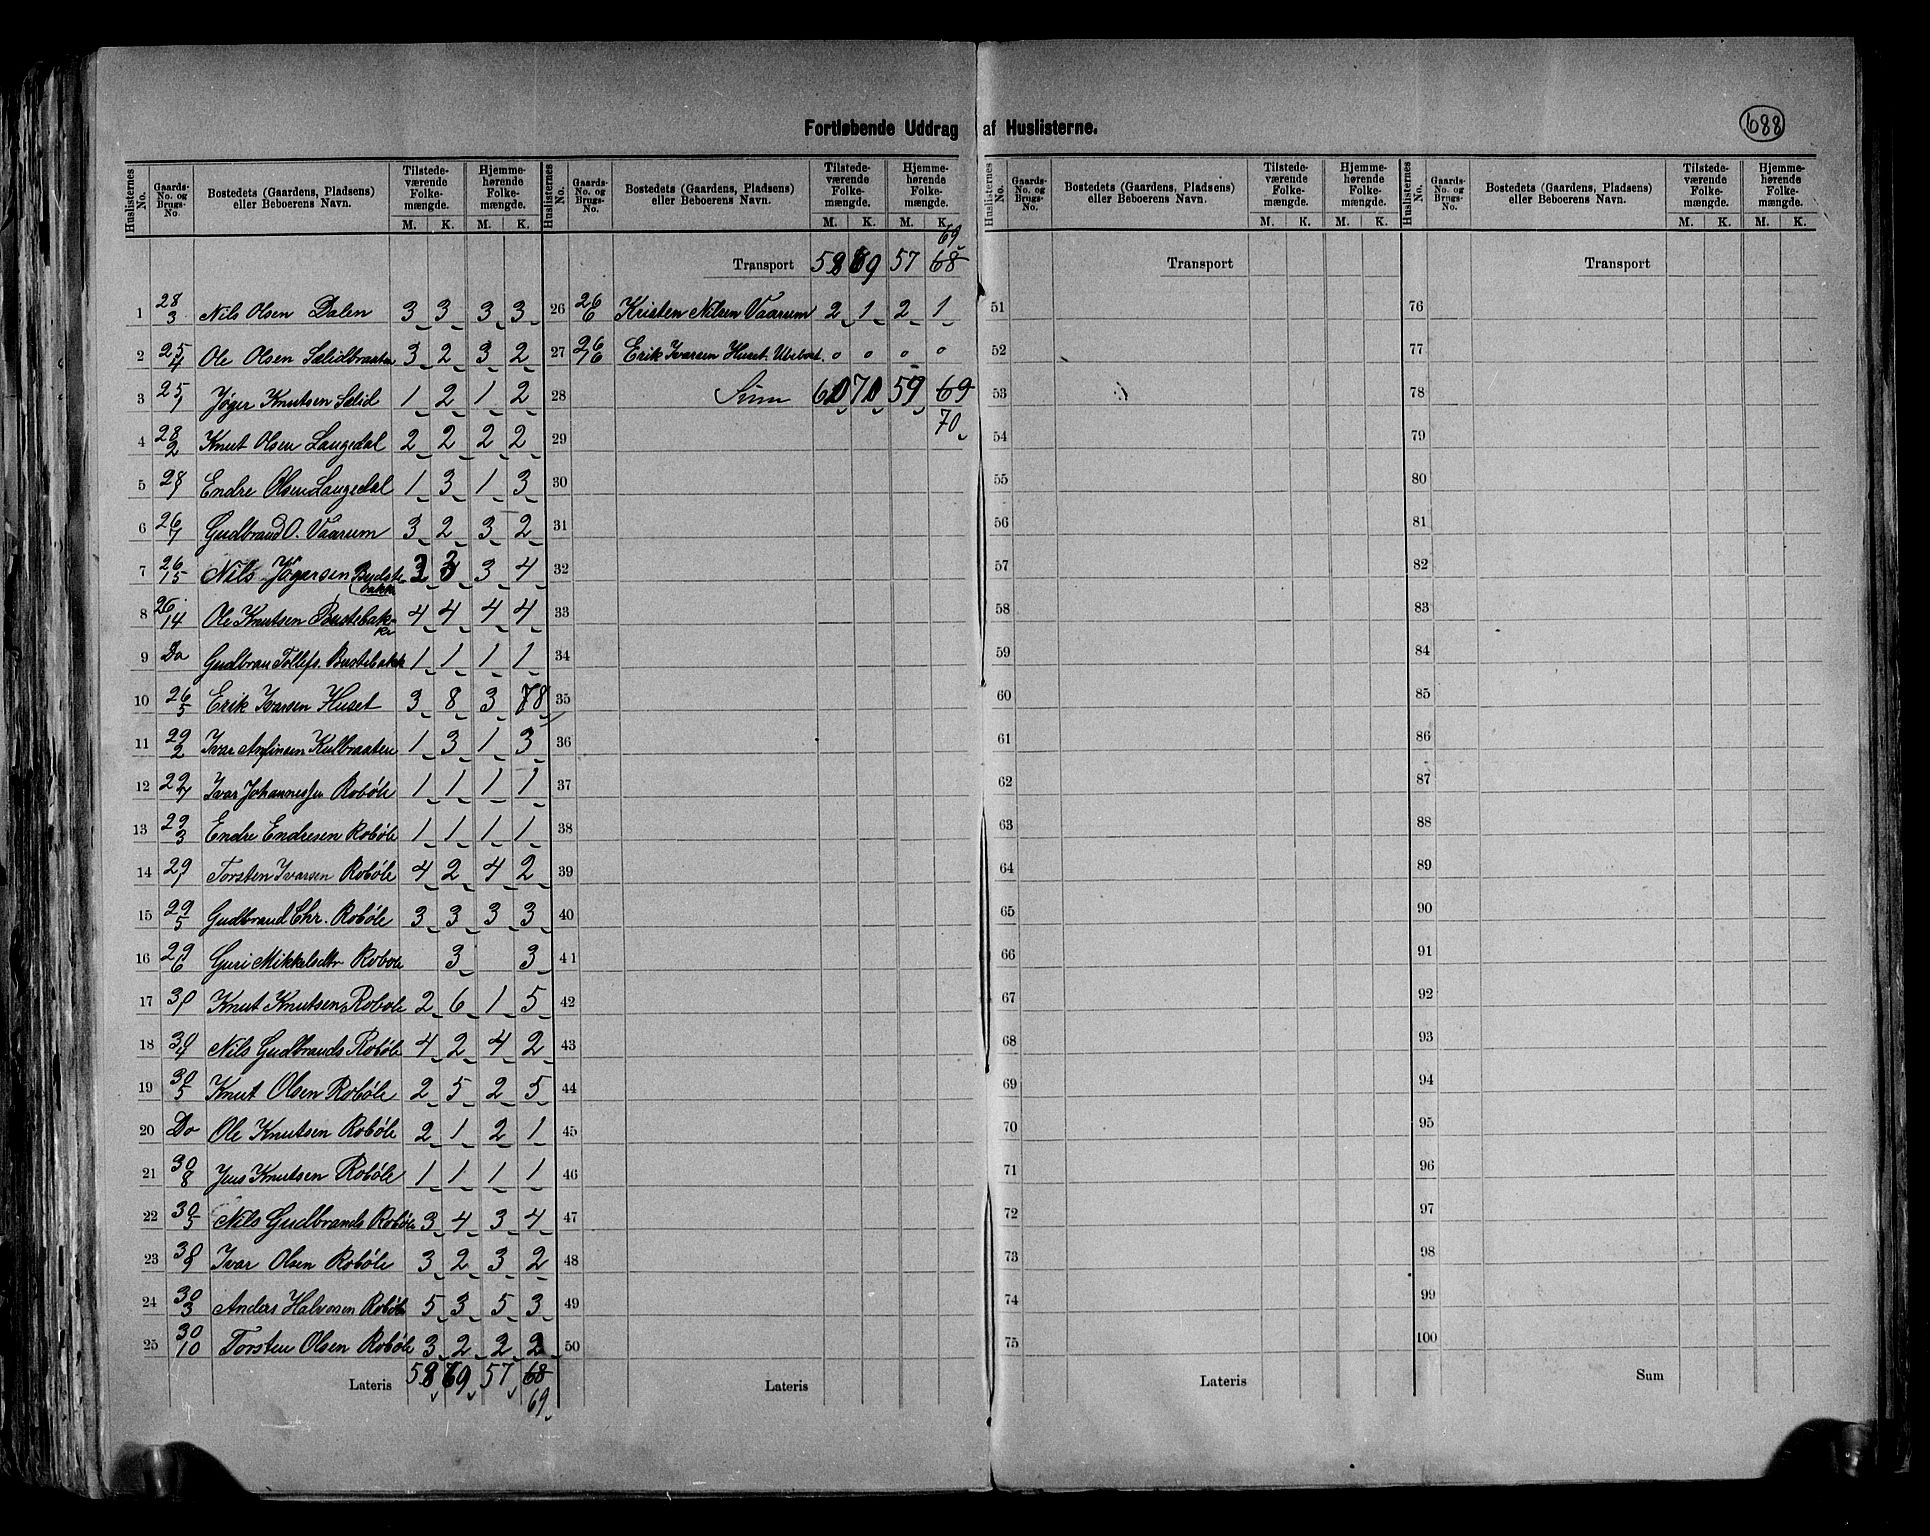 688
Fortløbende Uddrag af Huslisterne.
Huslisternes No. Gaards-No. og Brugs-No. Bostedets (Gaardens, Pladsens) eller Beboerens Navn. Tilstede-værende Folke-mængde. M. K. Hjemme-hørende Folke-mængde. M. K.
1 28/3 Nils Olsen Dalen 3 3 3 3
2 25/4 Ole Olsen Sælidbraaten 3 2 3 2
3 25/1 Jøger Knutsen Sælid 1 2 1 2
4 28/2 Knut Olsen Langedal 2 2 2 2
5 28/1 Endre Olsen Langedal 1 3 1 3
6 26/7 Gudbrand O. Vaarum 3 2 3 2
7 26/15 Nils Jøgersen Budstebakk 3 3 3 4
8 26/14 Ole Knutsen Bustebakke 4 4 4 4
9 Do Gudbran Tollefs. Bustebakk 1 1 1 1
10 26/5 Erik Ivarsen Huset 3 8 3 8
11 29/2 Ivar Kulbraaten 1 3 1 3
12 29 Ivar Johannessen Robøle 1 1 1 1
13 29/3 Endre Endresen Robøle 1 1 1 1
14 29/1 Torsten Ivarsen Robøle 4 2 4 2
15 29/5 Gudbrand Chr. Robøle 3 3 3 3
16 29/6 Guri Mikkelsdtr Robøle 3 3
17 30/1 Knut Knutsen Robøle 2 6 1 5
18 30/4 Nils Gudbrands Robøle 4 2 4 2
19 30/5 Knut Olsen Robøle 2 5 2 5
20 Do Ole Knutsen Robøle 2 1 2 1
21 30/8 Jens Knutsen Robøle 1 1 1 1
22 30/5 Nils Gudbrands Robøle 3 4 3 4
23 30 Ivar Olsen Robøle 3 2 3 2
24 30/3 Anders Halvorsen Robøle 5 3 5 3
25 30/10 Torsten Olsen Robøle 3 2 2 2
Lateris 58 69 57 68
69
Huslisternes No. Gaards-No. og Brugs-No. Bostedets (Gaardens, Pladsens) eller Beboerens Navn. Tilstede-værende Folke-mængde. M. K. Hjemme-hørende Folke-mængde. M. K.
69
Transport 58 69 57 68
26 26/6 Kristen Nilsen Vaarum 2 1 2 1
27 26 Erik Ivarsen Huset. Ubeboet. 0 0 0 0
28 Sum 60 70 59 69
29 70
30
31
32
33
34
35
36
37
38
39
40
41
42
43
44
45
46
47
48
49
50
Lateris
Huslisternes No. Gaards-No. og Brugs-No. Bostedets (Gaardens, Pladsens) eller Beboerens Navn. Tilstede-værende Folke-mængde. M. K. Hjemme-hørende Folke-mængde. M. K.
Transport
51
52
53
54
55
56
57
58
59
60
61
62
63
64
65
66
67
68
69
70
71
72
73
74
75
Lateris
Huslisternes No. Gaards-No. og Brugs-No. Bostedets (Gaardens, Pladsens) eller Beboerens Navn. Tilstede-værende Folke-mængde. M. K. Hjemme-hørende Folke-mængde. M. K.
Transport
76
77
78
79
80
81
82
83
84
85
86
87
88
89
90
91
92
93
94
95
96
97
98
99
100
Sum